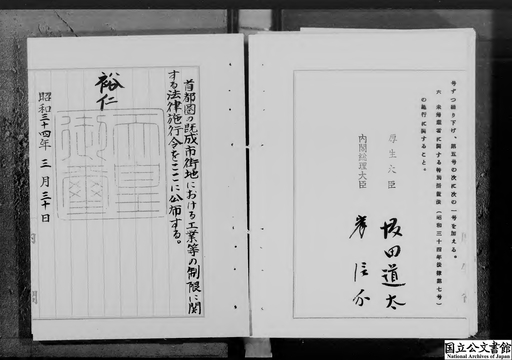 号ずつ繰り下げ、第五号の次に次の一号を加える。
六 未帰還者に関する特別措置法(昭和三十四年法律第七号)
の施行に関すること。
厚生大臣
坂田道太
内閣総理大臣
岸信介
首都圏の既成市街地における工業等の制限に関
する法律施行令をここに公布する。
裕仁
天皇
御璽
昭和三十四年三月三十日
国立公文書館
National Archives of Japan